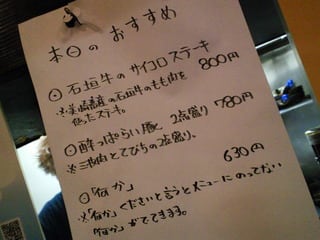 本日のおすすめ
⊙石垣牛のサイコロステーキ
800円
※美崎産の石垣牛のもも肉を
使ったステーキ。
⊙酔っぱらい豚 2点盛り 780円
※三枚肉とてびちの2点盛り。
⊙「何か」 630円
※「何か」くださいと言うとメニューにのってない
「何か」がでてきます。